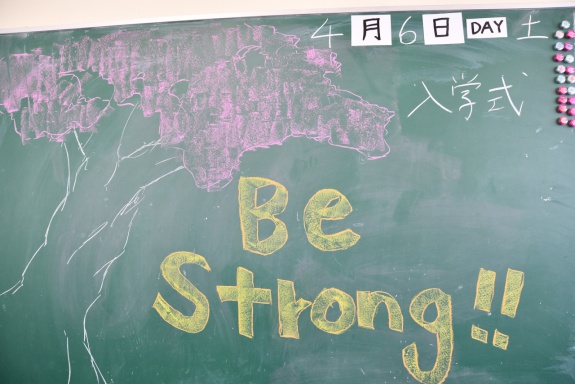 4月6日 DAY 土
入学式
Be
Strong!!